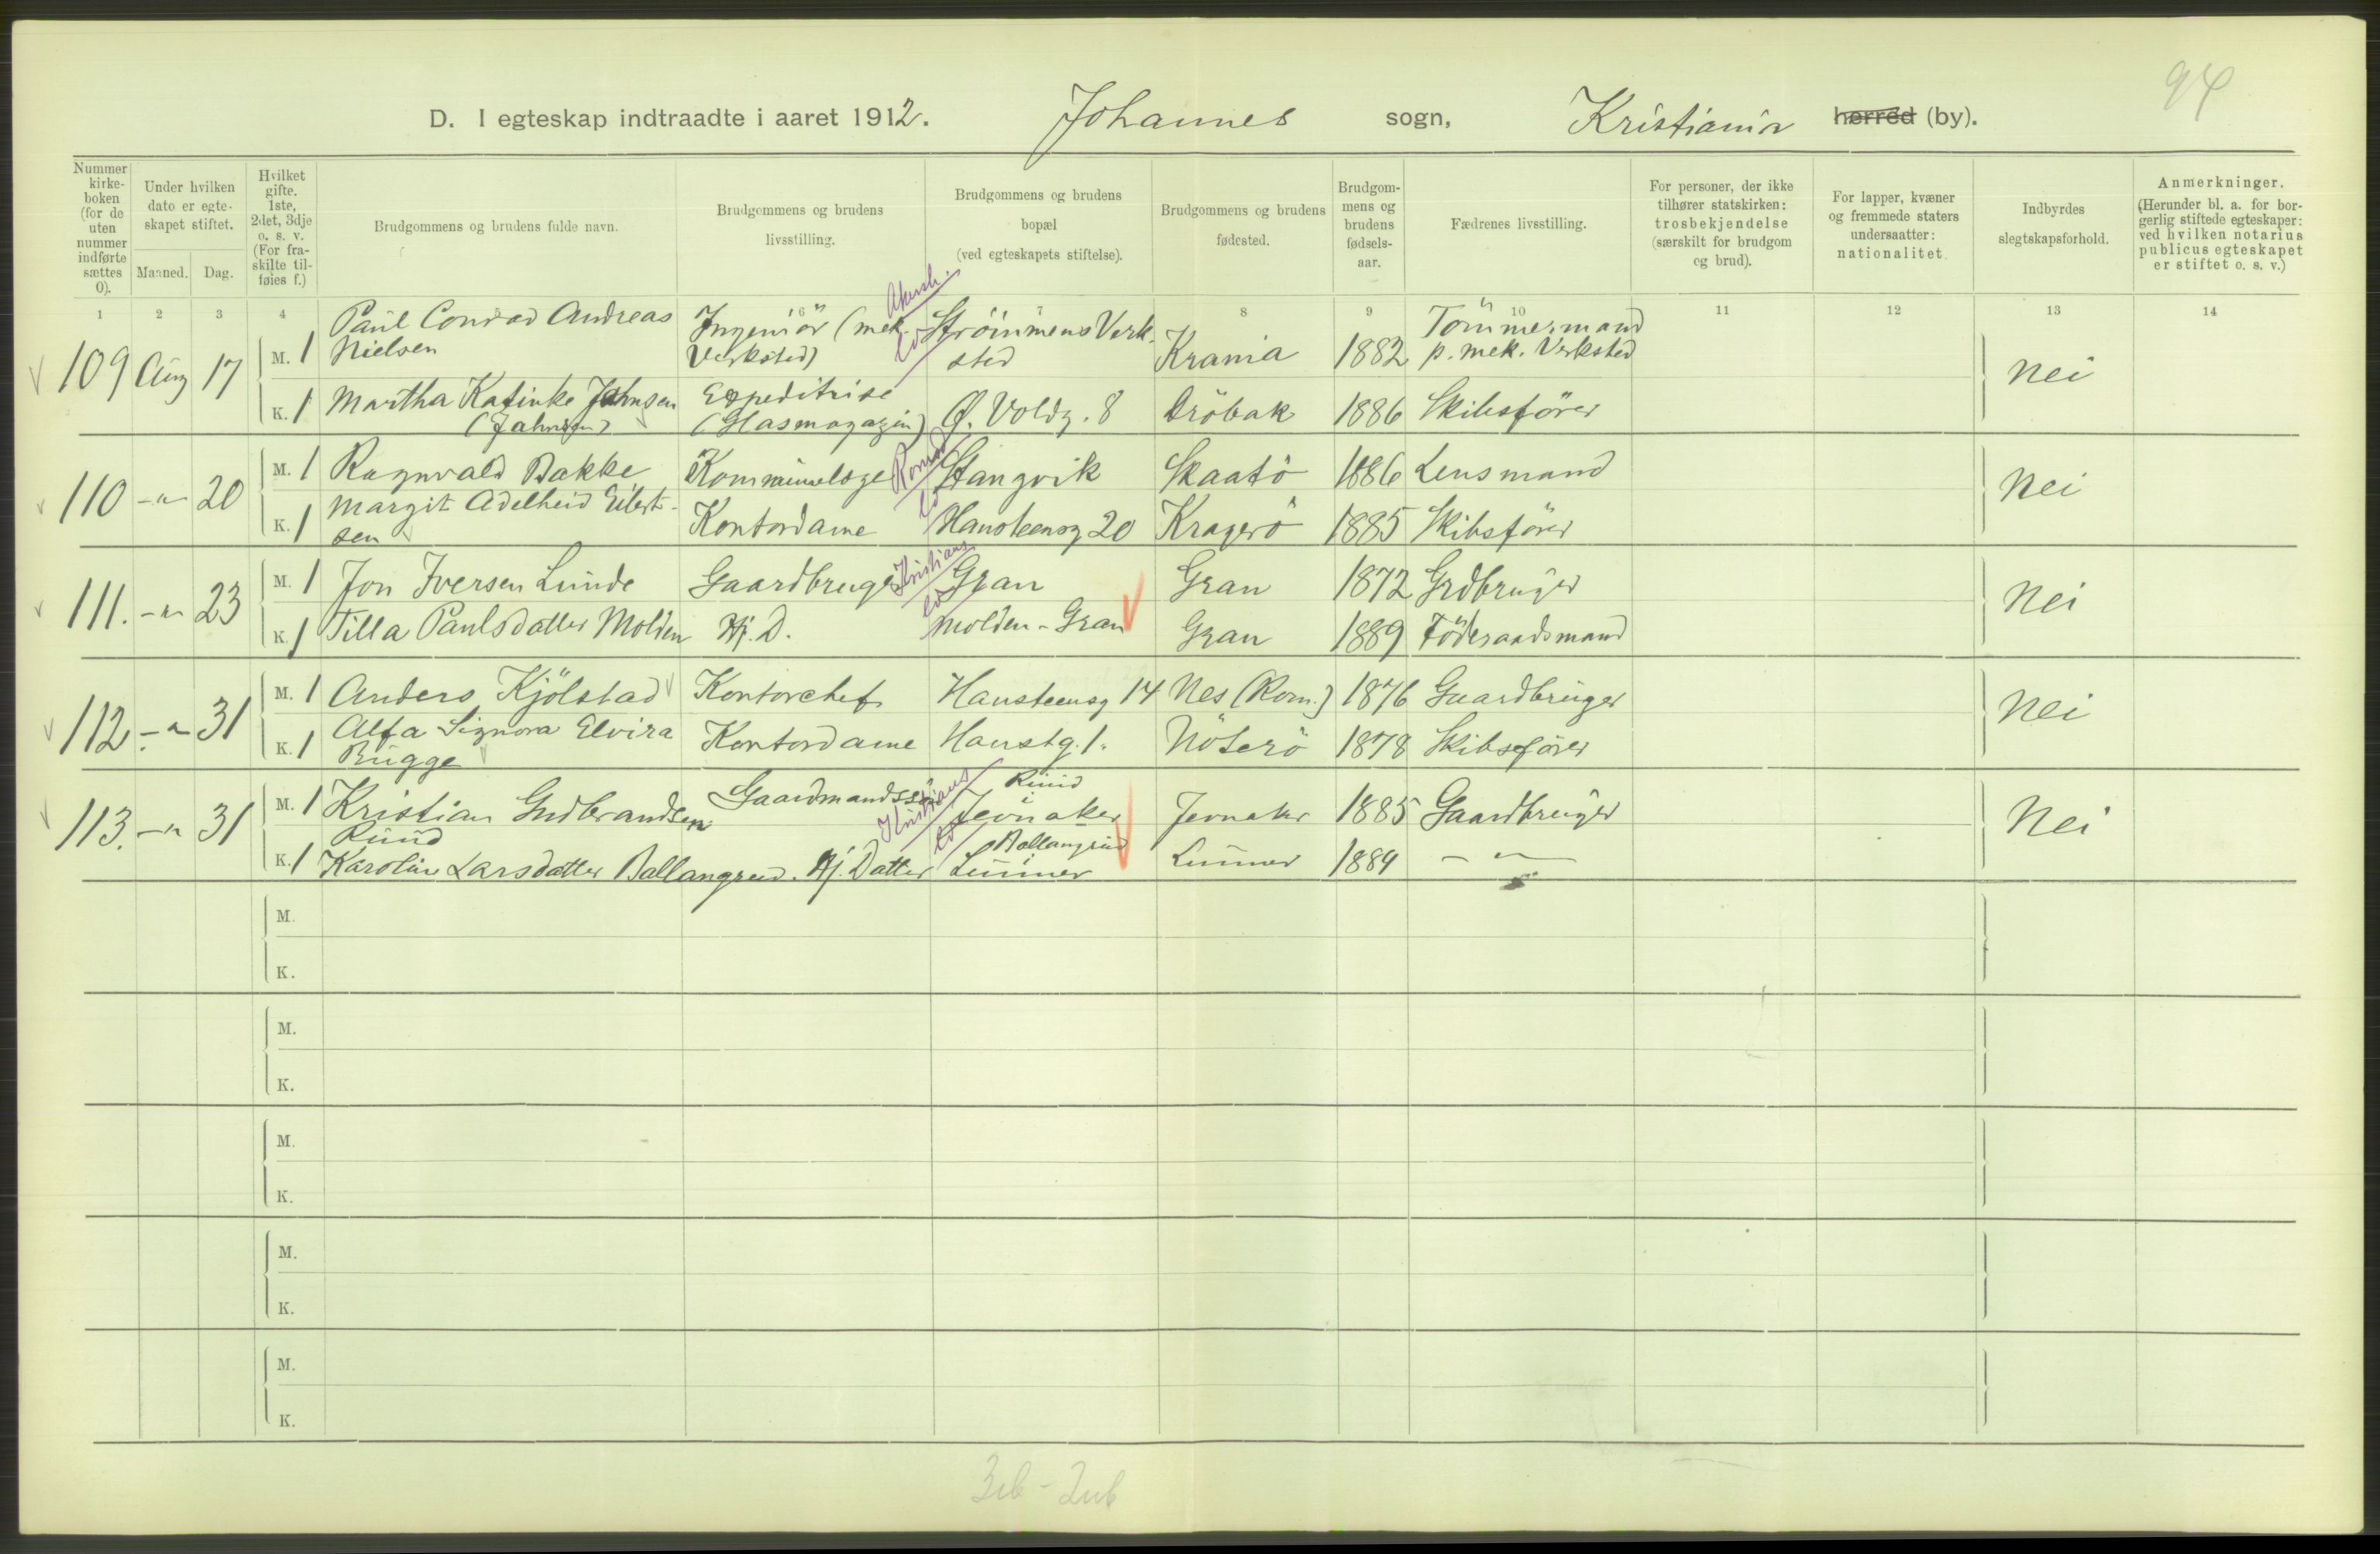 94
D. I egteskap indtraadte i aaret 1912. Johannes sogn, Kristiania herred (by).
Nummer kirke-boken (for de uten nummer indførte sættes 0).
Under hvilken dato er egte-skapet stiftet.
Maaned. Dag.
Hvilket gifte. 1ste, 2det, 3dje o. s. v. (For fra-skilte til-føies f.)
Brudgommens og brudens fulde navn.
Brudgommens og brudens livsstilling.
Brudgommens og brudens bopæl (ved egteskapets stiftelse).
Brudgommens og brudens fødested.
Brudgom-mens og brudens fødsels-aar.
Fædrenes livsstilling.
For personer, der ikke tilhører statskirken: trosbekjendelse (særskilt for brudgom og brud).
For lapper, kvæner og fremmede staters undersaatter: nationalitet.
Indbyrdes slegtskapsforhold.
Anmerkninger. (Herunder bl. a. for bor-gerlig stiftede egteskaper: ved hvilken notarius publicus egteskapet er stiftet o. s. v.)
1 2 3 4 6 7 8 9 10 11 12 13 14
109 Aug 17 M. 1 Paul Conrad Andreas Nielsen Ingeniör (mek. Verksted) Akersh. Strömmens Verk-sted Krania 1882 Tömmermand p. mek. Verksted Nei
K. 1 Martha Katinka Johnsen (Jahnsen) Expeditrise (Glasmagazin) Ø. Voldg. 8 Dröbak 1886 Skibsförer
110 -"- 20 M. 1 Ragnvald Bakke Romsd Stangvik Skaatö 1886 Lensmand Nei
K. 1 Margit Adelheid Eilert-sen Kontordame Hansteensg 20 Kragerö 1885 Skibsförer
111. -"- 23 M. 1 Jon Iversen Lunde Gaardbruger Kristians Gran Gran 1872 Grdbruger Nei
K. 1 Tilla Paulsdatter Molden Hj. D. Molden - Gran Gran 1889 Föderaadsmand
112 -"- 31 M. 1 Anders Kjölstad Kontorchef Hansteensg 14 Nes (Rom.) 1876 Gaardbruger Nei
K. 1 Alfa Signora Elvira Bugge Kontordame Hanstg. 1. Nöterö 1878 Skibsförer
113. -"- 31 M. 1 Kristian Gudbrandsen Ruud Gaardmandssön Kristians Ruud i Jevnaker Jevnaker 1885 Gaardbruger Nei
K. 1 Karoline Larsdatter Ballangrud. Hj. Datter Ballangrud i Lunner Lunner 1889 - " -
M.
K.
M.
K.
M.
K.
M.
K.
M.
K.